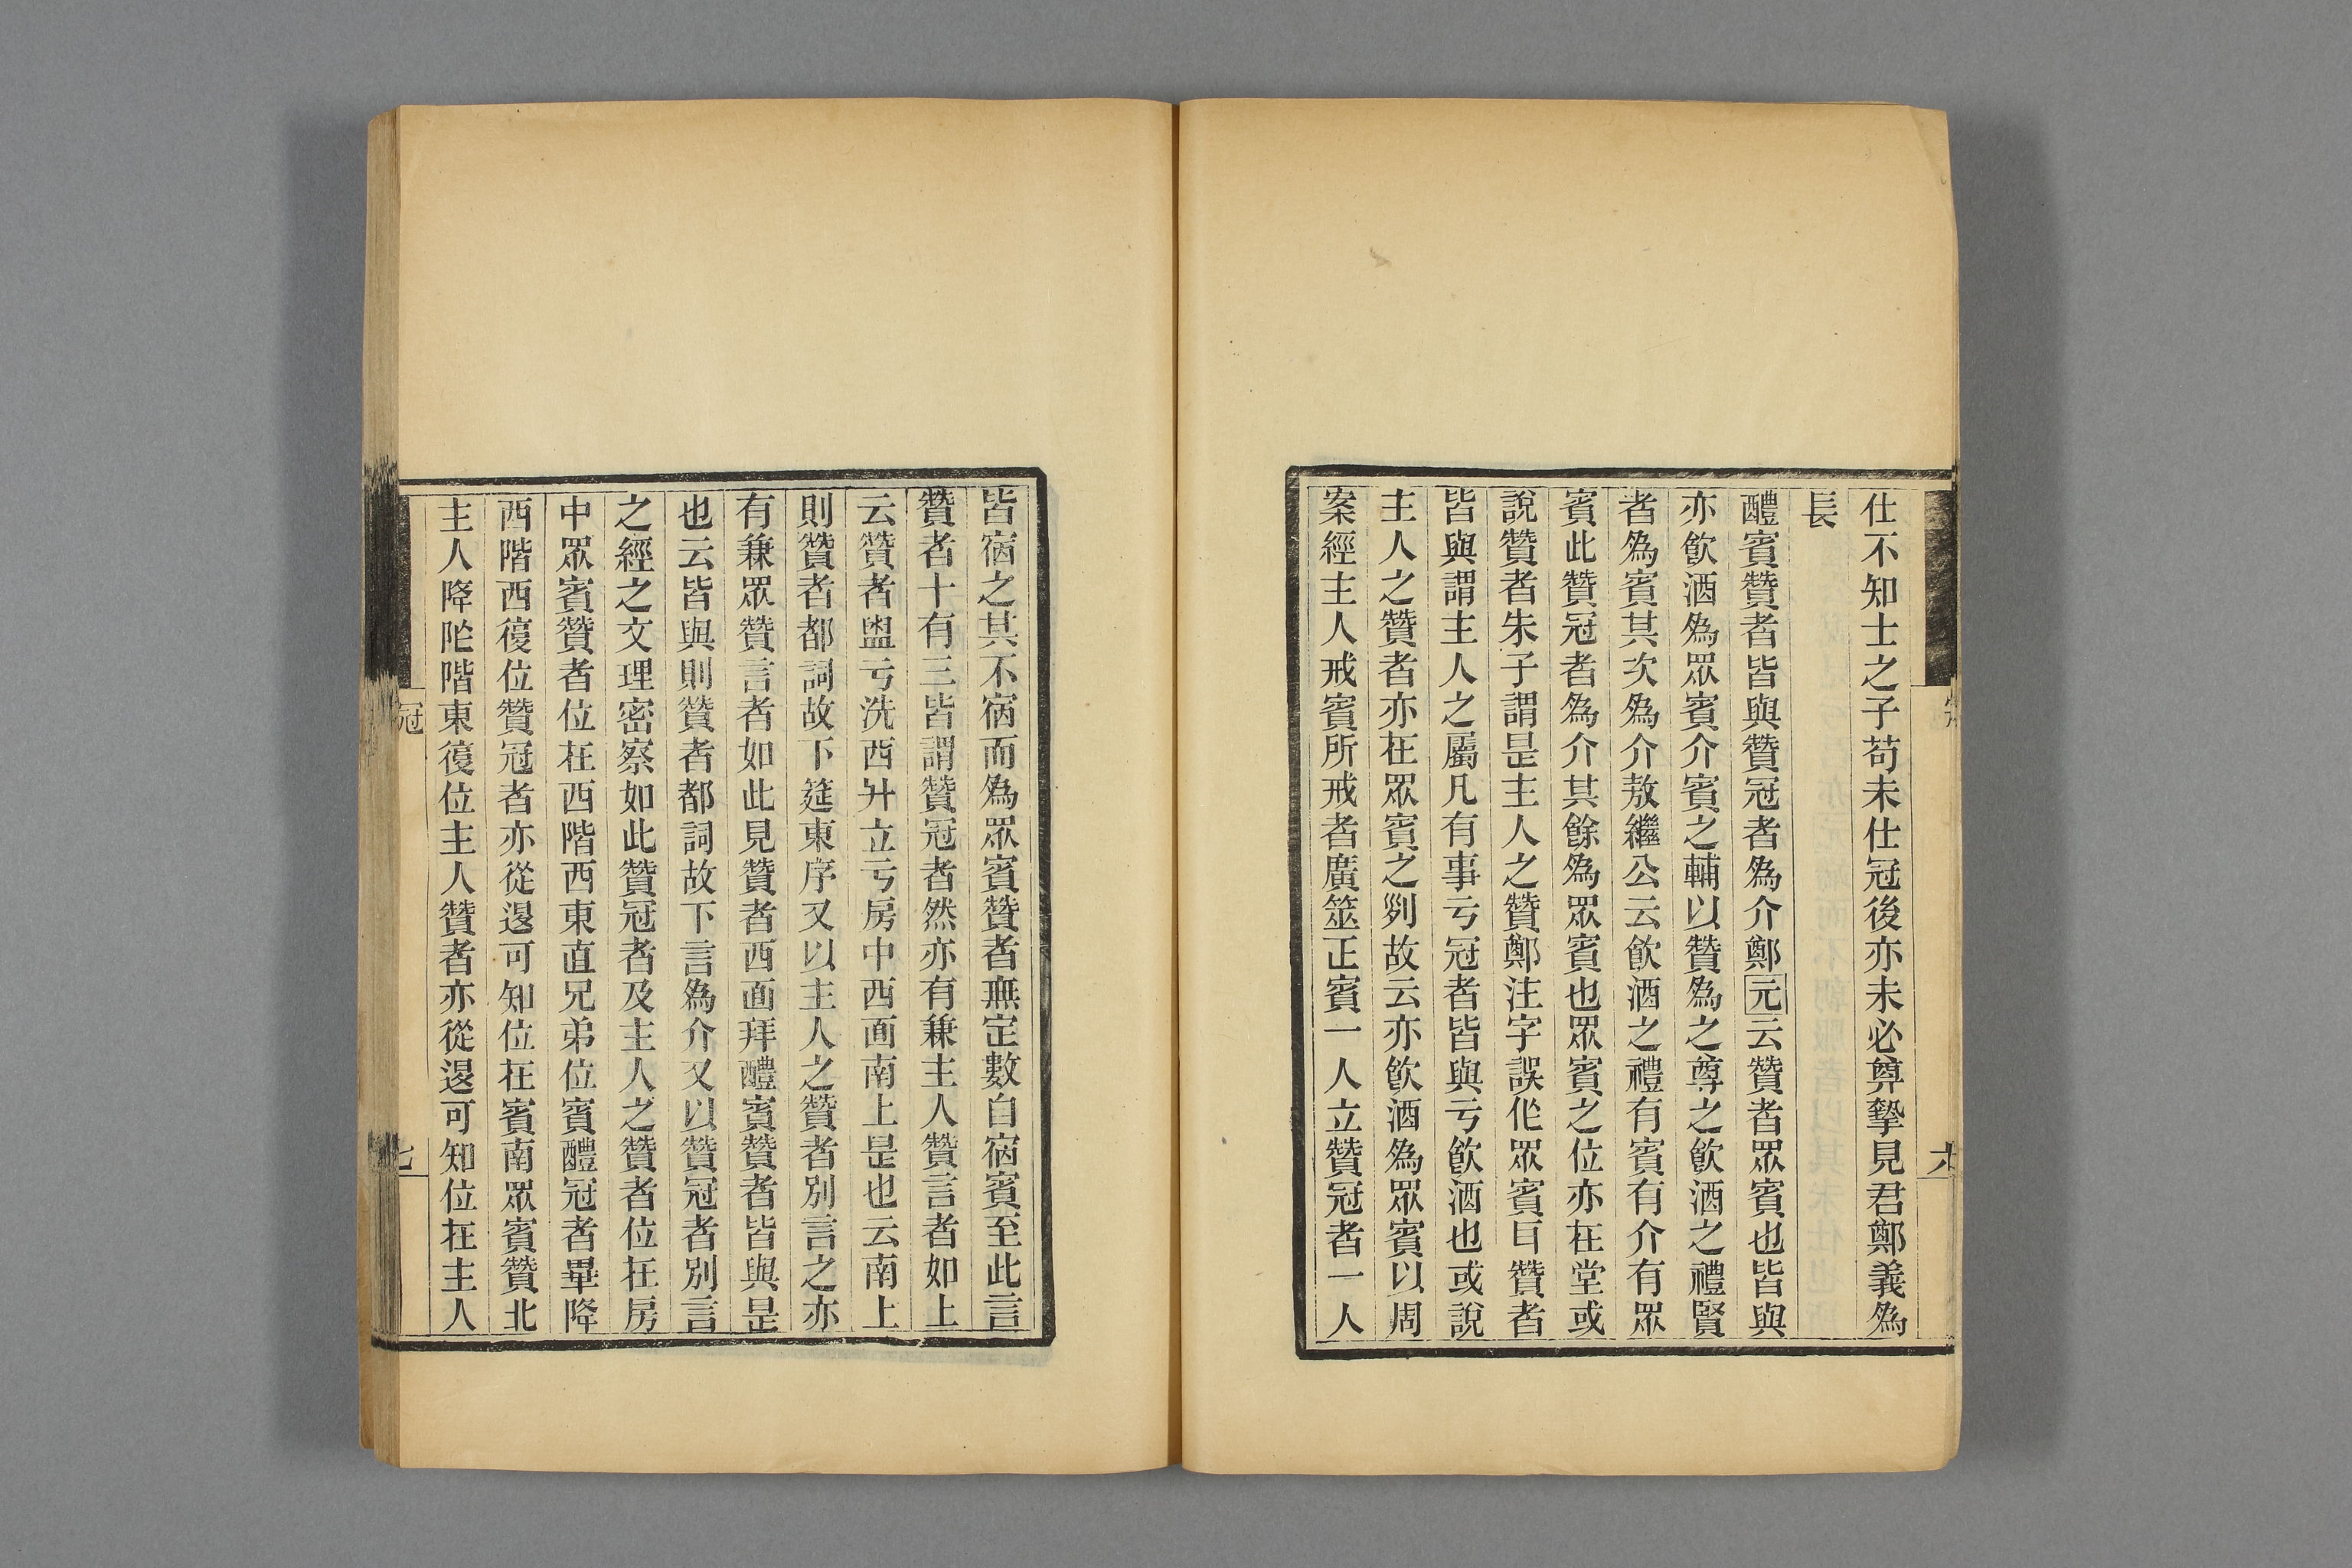 仕不知士之子苟未仕冠後亦未必尊摯見君鄭義為
長
醴賓贊者皆與贊冠者為介鄭元云贊者眾賓也皆與
亦飲酒為眾賓介賓之輔以贊為之尊之飲酒之禮賢
者為賓其次為介敖繼公云飲酒之禮有賓有介有眾
賓此贊冠者為介其餘為眾賓也眾賓之位亦在堂或
說贊者朱子謂是主人之贊鄭注字誤作眾賓曰贊者
皆與謂主人之屬凡有事亏冠者皆與亏飲酒也或說
主人之贊者亦在眾賓之列故云亦飲酒為眾賓以周
案經主人戒賓所戒者廣筮正賓一人立贊冠者一人
六
皆宿之其不宿而為眾賓贊者無定數自宿賓至此言
贊者十有三皆謂贊冠者然亦有兼主人贊言者如上
云贊者盥亏洗西升立亏房中西面南上是也云南上
則贊者都詞故下筵東序又以主人之贊者別言之亦
有兼眾贊言者如此見贊者西面拜醴賓贊者皆與是
也云皆與則贊者都詞故下言為介又以贊冠者別言
之經之文理密察如此贊冠者及主人之贊者位在房
中眾賓贊者位在西階西東直兄弟位賓醴冠者畢降
西階西復位贊冠者亦從退可知位在賓南眾賓贊北
主人降阼階東復位主人贊者亦從退可知位在主人
冠
七